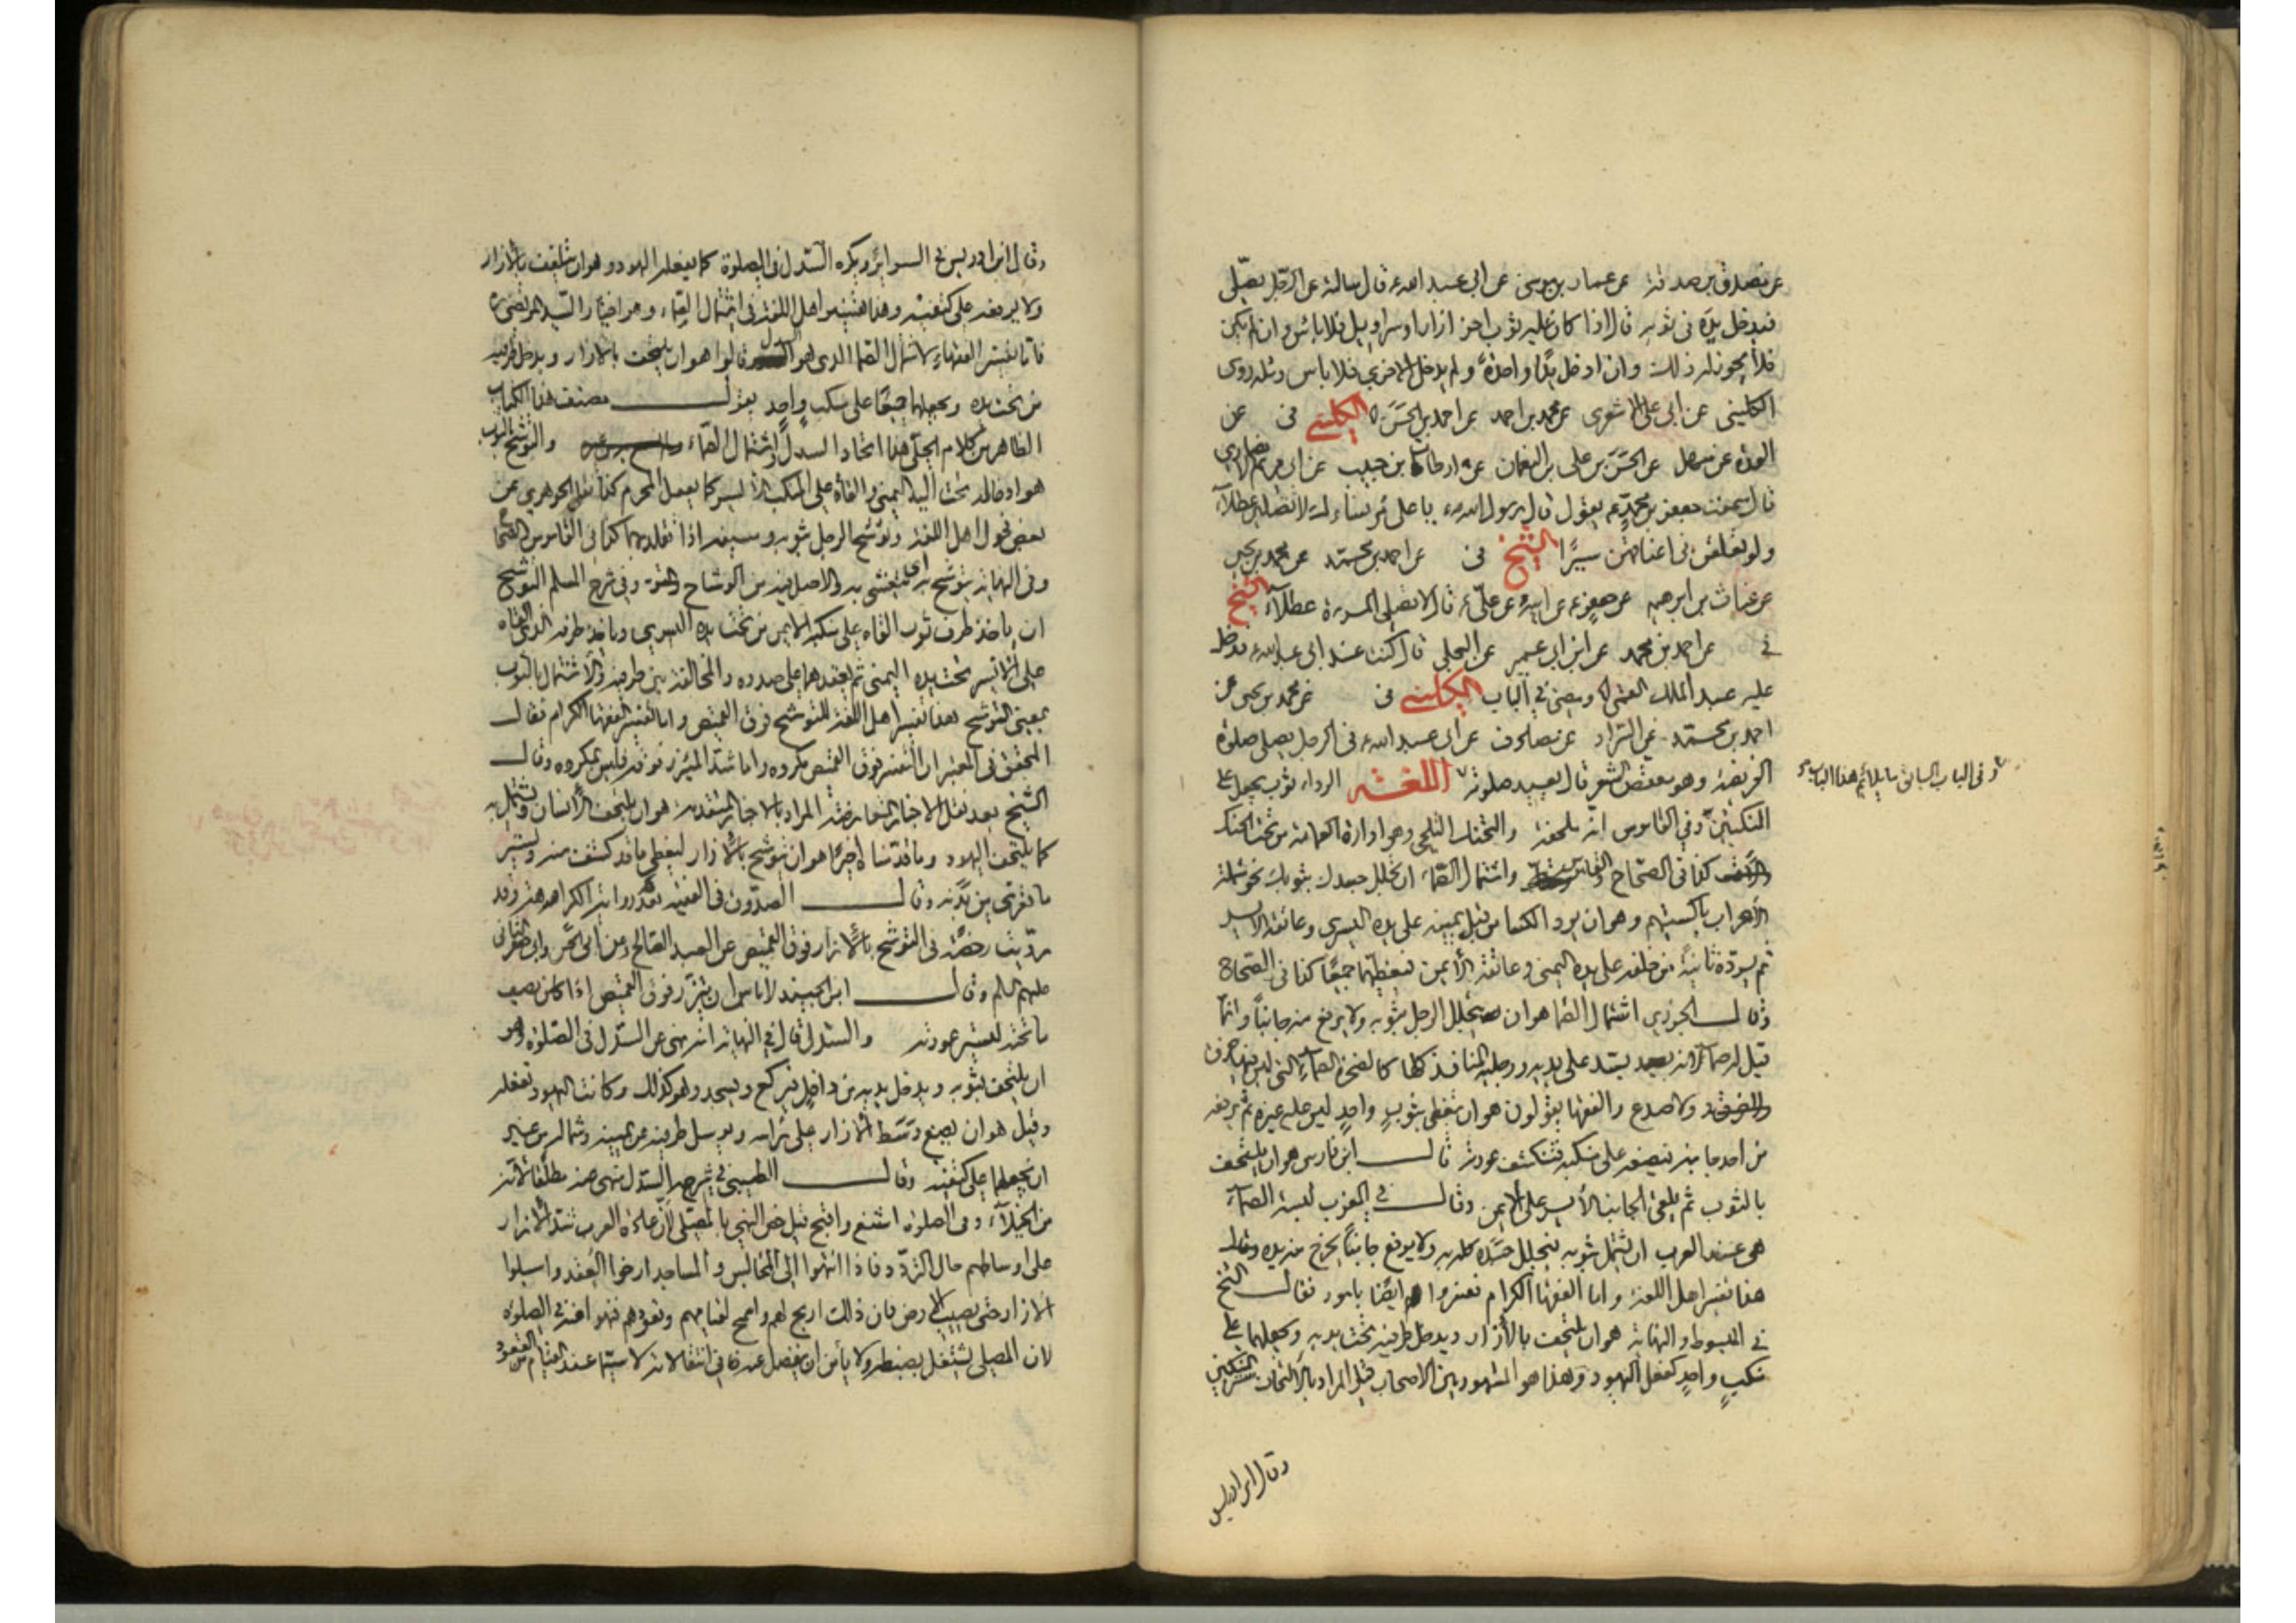 عن مصدق بن صدقة عن عمار بن موسى عن ابي عبد الله ع قال سالته عن الرجل يصلى
فيدخل يده فى ثوبه قال اذا كان عليه ثوب اخر ازار او سراويل فلا باس وان لم يكن
فلا يجوز له ذلك وان ادخل يدًا واحدةً ولم يدخل الاخرى فلا باس ومثله روى
الكليني عن ابي على الاشعرى عن محمد بن احمد عن احمد بن الحَسَن الكليني فى عن
العدة عن سهل عن الحسن بن على بن النعمان عن ارطاة بن حبيب عن ابى مريم الانصارى
قال سمعت جعفر بن محمد ع يقول قال رسول الله ص يا على مر نساءك لا تصلين عطلاً
ولو يعلقن فى اعناقهن سيرًا الشيخ فى عن احمد بن محمد عن محمد بن يحيى
عن غياث بن ابرهيم عن جعفر ع عن ابيه عن علىّ ع قال لا تصلى المرءة عطلاً الشيخ
فى عن احمد بن محمد عن ابن ابى عمير عن البجلى قال كنت عند ابى عبد الله ع فدخل
عليه عبد الملك القمى ومضى فى الباب الكليني فى عن محمد بن يحيى عن
احمد بن محمد عن السراد عن مصادف عن ابى عبد الله ع فى الرجل يصلى صلوة
الفريضة وهو معقص الشعر قال يعيد صلوته اللغة الرداء ثوب يجعل على
المنكبين وفى القاموس انه ملحفة والتحنك التلحى وهو ادارة العمامة من تحت الحنك
كذا فى الصحاح واشتمال الصماء ان تجلل جسدك بثوبك نحو شملة
الاعراب باكسيتهم وهو ان يرد الكساء من قبل يمينه على يده اليسرى وعاتقه الايسر
ثم يرده ثانيةً من خلفه على يده اليمنى وعاتقه الأيمن فيغطيهما جميعًا كذا فى الصحاح
وقال الجزرى اشتمال الصماء هو ان يتجلل الرجل بثوبه ولا يرفع منه جانباً وانما
قيل لها صماء لانه يسد على يديه ورجليه المنافذ كلها كالصخرة الصماء التى ليس فيها خرق
ولا صدع والفقهاء يقولون هو ان يتغطى بثوبٍ واحدٍ ليس عليه غيره ثم يرفعه
من احد جانبيه فيضعه على منكبه فتنكشف عورته قال ابن فارس هو ان يلتحف
بالثوب ثم يلقى الجانب الأيسر على الايمن وقال فى المغرب لبسة الصماء
هى عند العرب ان يشتمل بثوبه فيجلل جسده كله به ولا يرفع جانباً يخرج منه يده وقال
هذا تفسير اهل اللغة واما الفقهاء الكرام ففسروا ايضًا بامور فقال الشيخ
فى المبسوط والنهاية هو ان يلتحف بالأزار ويدخل طرفيه تحت يديه ويجعلهما على
منكبٍ واحدٍ كفعل اليهود وهذا هو المشهور بين الاصحاب قيل المراد بالالتحاف ستر المنكبين
وقال ابن ادريس
وفى الباب السابق ما يلائم هذا الباب
وقال ابن ادريس فى السرائر ويكره السدل فى الصلوة كما يفعل اليهود وهو ان يتلفف بالازار
ولا يرفعه على كتفيه وهذا تفسير اهل اللغة فى اشتمال الصماء وهو اختيار السيد المرتضى ره
فاما تفسير الفقهاء لاشتمال الصماء الذى هو السدل قالوا هو ان يلتحف بالازار ويدخل طرفيه
من تحت يده ويجعلهما جميعًا على منكب واحد يقول مصنف هذا الكتاب
الظاهر من كلام الجلّ هذا اتحاد السدل واشتمال الصماء والتوشح بالثوب
هو ادخاله تحت اليد اليمنى والقاؤه على المنكب الأيسر كما يفعل المحرم كذا نقل الجوهرى عن
بعض فحول اهل اللغة وتوشح الرجل بثوبه وسيفه اذا تقلد بهما كذا فى القاموس
وفى النهاية يتوشح به اى يتغشى به والاصل فيه من الوشاح وفى شرح المسلم التوشح
ان ياخذ طرف ثوب القاه على منكبه الايمن من تحت يده اليسرى وياخذ طرفه الذى القاه
على الايسر تحت يده اليمنى ثم يعقدهما على صدره والمخالفة بين طرفيه والاشتمال بالثوب
بمعنى التوشح هذا تفسير اهل اللغة للتوشح فوق القميص واما تفسير الفقهاء الكرام فقال
المحقق فى المعتبر ان التوشح فوق القميص مكروه واما شد الميزر فوقه فليس بمكروه وقال
الشيخ بعد نقل الاخبار المتعارضة المراد بالاخبار المتقدمة هو ان يلتحف الأنسان ويشتمل به
كما يلتحف اليهود وما قدمناه اخيرًا هو ان يتوشح بالأزار ليغطى ما قد كشف منه ويستر
ما تعرى من بدنه وقال الصدوق فى الفقيه بعد رواية الكراهة وقد
رويت رخصة فى التوشح بالأزار فوق القميص عن العبد الصالح وعن ابى الحسن وابى جعفر الثانى
عليهم السلم وقال ابن الجنيد لا باس ان يتزر فوق القميص اذا كان يصف
ما تحته ليستر عورته والسدل قال فى النهاية انه نهى عن السدل فى الصلوة وهو
ان يلتحف بثوبه ويدخل يديه من داخل فيركع ويسجد وهو كذلك وكانت اليهود تفعله
وقيل هو ان يضع وسط الازار على راسه ويرسل طرفيه عن يمينه وشماله من غير
ان يجعلهما على كتفيه وقال الطيبى فى شرحه السدل منهى عنه مطلقًا لانه
من الخيلاء وفى الصلوة اشنع واقبح قيل خص النهى بالمصلى لان عادة العرب شد الازار
على اوساطهم حال التردد فاذا انتهوا الى المجالس والمساجد ارخوا العقد واسبلوا
الازار حتى يصيب الارض فان ذلك اروح لهم واسمح لقيامهم وقعودهم فنهوا عنه فى الصلوة
لان المصلى يشتغل بضبطه ولا يأمن ان ينفصل عنه فى انتقالاته لا سيما عند القيام من القعود